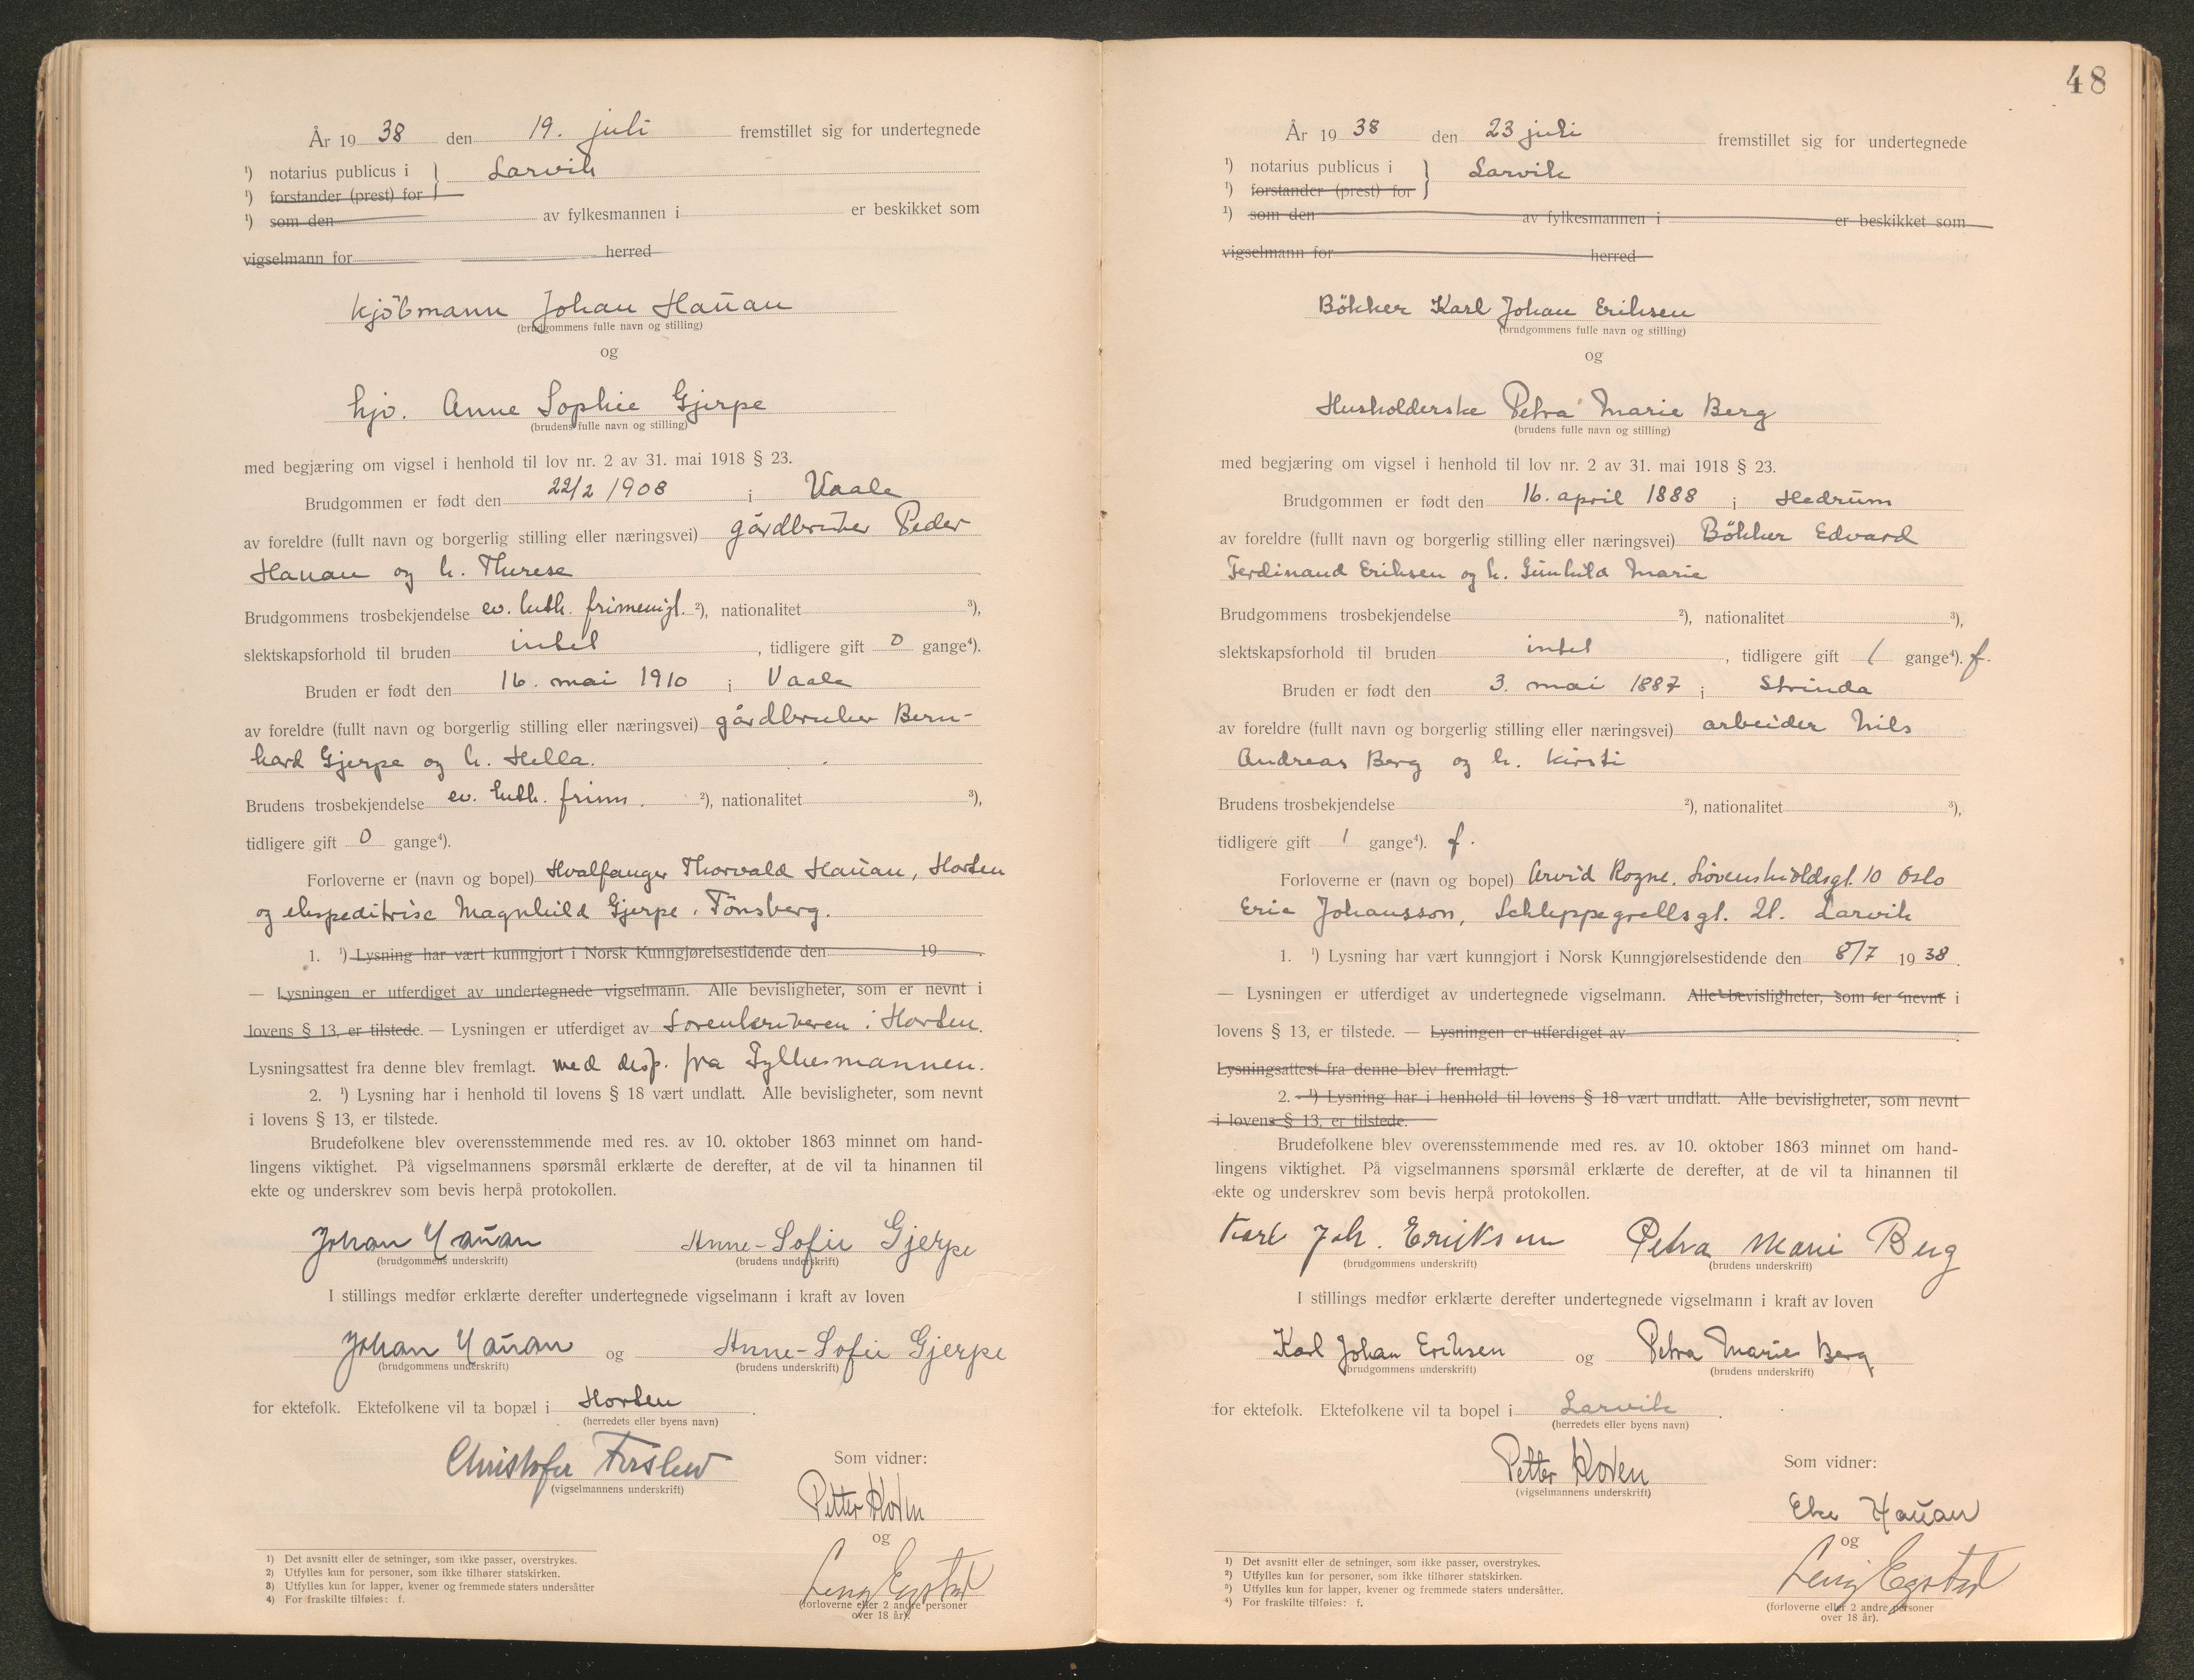 År 1938 den 19. juli fremstillet sig for undertegnede
¹) notarius publicus i } Larvik
¹) forstander (prest) for
¹) som den av fylkesmannen i er beskikket som
vigselmann for herred
kjöbmann Johan Hauan
(brudgommens fulle navn og stilling)
og
hjv. Anne Sophie Gjerpe
(brudens fulle navn og stilling)
med begjæring om vigsel i henhold til lov nr. 2 av 31. mai 1918 § 23.
Brudgommen er født den 22/2 1908 i Vaale
av foreldre (fullt navn og borgerlig stilling eller næringsvei) gårdbruker Peder
Hauan og h. Therese
Brudgommens trosbekjendelse ev. luth. frimenigh. ²), nationalitet ³),
slektskapsforhold til bruden intet, tidligere gift 0 gange⁴).
Bruden er født den 16. mai 1910 i Vaale
av foreldre (fullt navn og borgerlig stilling eller næringsvei) gårdbruker Bern-
hard Gjerpe og h. Hella.
Brudens trosbekjendelse ev. luth. frim. ²), nationalitet ³),
tidligere gift 0 gange⁴).
Forloverne er (navn og bopel) Hvalfanger Thorvald Hauan, Horten
og ekspeditrise Magnhild Gjerpe, Tönsberg.
1. ¹) Lysning har vært kunngjort i Norsk Kunngjørelsestidende den 19 .
— Lysningen er utferdiget av undertegnede vigselmann. Alle bevisligheter, som er nevnt i
lovens § 13, er tilstede. — Lysningen er utferdiget av Sorenskriveren i Horten.
Lysningsattest fra denne blev fremlagt. med disp. fra Fylkesmannen.
2. ¹) Lysning har i henhold til lovens § 18 vært undlatt. Alle bevisligheter, som nevnt
i lovens § 13, er tilstede.
Brudefolkene blev overensstemmende med res. av 10. oktober 1863 minnet om hand-
lingens viktighet. På vigselmannens spørsmål erklærte de derefter, at de vil ta hinannen til
ekte og underskrev som bevis herpå protokollen.
Johan Hauan Anne-Sofie Gjerpe
(brudgommens underskrift) (brudens underskrift)
I stillings medfør erklærte derefter undertegnede vigselmann i kraft av loven
Johan Hauan og Anne-Sofie Gjerpe
(brudgommens underskrift) (brudens underskrift)
for ektefolk. Ektefolkene vil ta bopæl i Horten.
(herredets eller byens navn)
Christofer Ferslew
(vigselmannens underskrift)
Som vidner:
Petter Koren
og
Egstad
(forloverne eller 2 andre personer
over 18 år).
1) Det avsnitt eller de setninger, som ikke passer, overstrykes.
2) Utfylles kun for personer, som ikke tilhører statskirken.
3) Utfylles kun for lapper, kvener og fremmede staters undersåtter
4) For fraskilte tilføies: f.
48
År 1938 den 23 juli fremstillet sig for undertegnede
¹) notarius publicus i } Larvik
¹) forstander (prest) for
¹) som den av fylkesmannen i er beskikket som
vigselmann for herred
Bökker Karl Johan Eriksen
(brudgommens fulle navn og stilling)
og
Husholderske Petra Marie Berg
(brudens fulle navn og stilling)
med begjæring om vigsel i henhold til lov nr. 2 av 31. mai 1918 § 23.
Brudgommen er født den 16. april 1888 i Hedrum
av foreldre (fullt navn og borgerlig stilling eller næringsvei) Bökker Edvard
Ferdinand Eriksen og h. Gunhild Marie
Brudgommens trosbekjendelse ²), nationalitet ³),
slektskapsforhold til bruden intet, tidligere gift 1 gange⁴). f.
Bruden er født den 3. mai 1887 i Strinda
av foreldre (fullt navn og borgerlig stilling eller næringsvei) arbeider Nils
Andreas Berg og h. Kirsti
Brudens trosbekjendelse ²), nationalitet ³),
tidligere gift 1 gange⁴). f.
Forloverne er (navn og bopel) Arvid Rogne, Lövenskioldsgt. 10 Oslo
Eric Johansson, Schleppegrellsgt. 21. Larvik
1. ¹) Lysning har vært kunngjort i Norsk Kunngjørelsestidende den 8/7 1938.
— Lysningen er utferdiget av undertegnede vigselmann. Alle bevisligheter, som er nevnt i
lovens § 13, er tilstede. — Lysningen er utferdiget av .
Lysningsattest fra denne blev fremlagt.
2. ¹) Lysning har i henhold til lovens § 18 vært undlatt. Alle bevisligheter, som nevnt
i lovens § 13, er tilstede.
Brudefolkene blev overensstemmende med res. av 10. oktober 1863 minnet om hand-
lingens viktighet. På vigselmannens spørsmål erklærte de derefter, at de vil ta hinannen til
ekte og underskrev som bevis herpå protokollen.
Karl Joh. Eriksen Petra Marie Berg
(brudgommens underskrift) (brudens underskrift)
I stillings medfør erklærte derefter undertegnede vigselmann i kraft av loven
Karl Johan Eriksen og Petra Marie Berg
(brudgommens underskrift) (brudens underskrift)
for ektefolk. Ektefolkene vil ta bopel i Larvik.
(herredets eller byens navn)
Petter Koren
(vigselmannens underskrift)
Som vidner:
Hauan
og
Egstad
(forloverne eller 2 andre personer
over 18 år).
1) Det avsnitt eller de setninger, som ikke passer, overstrykes.
2) Utfylles kun for personer, som ikke tilhører statskirken.
3) Utfylles kun for lapper, kvener og fremmede staters undersåtter.
4) For fraskilte tilføies: f.